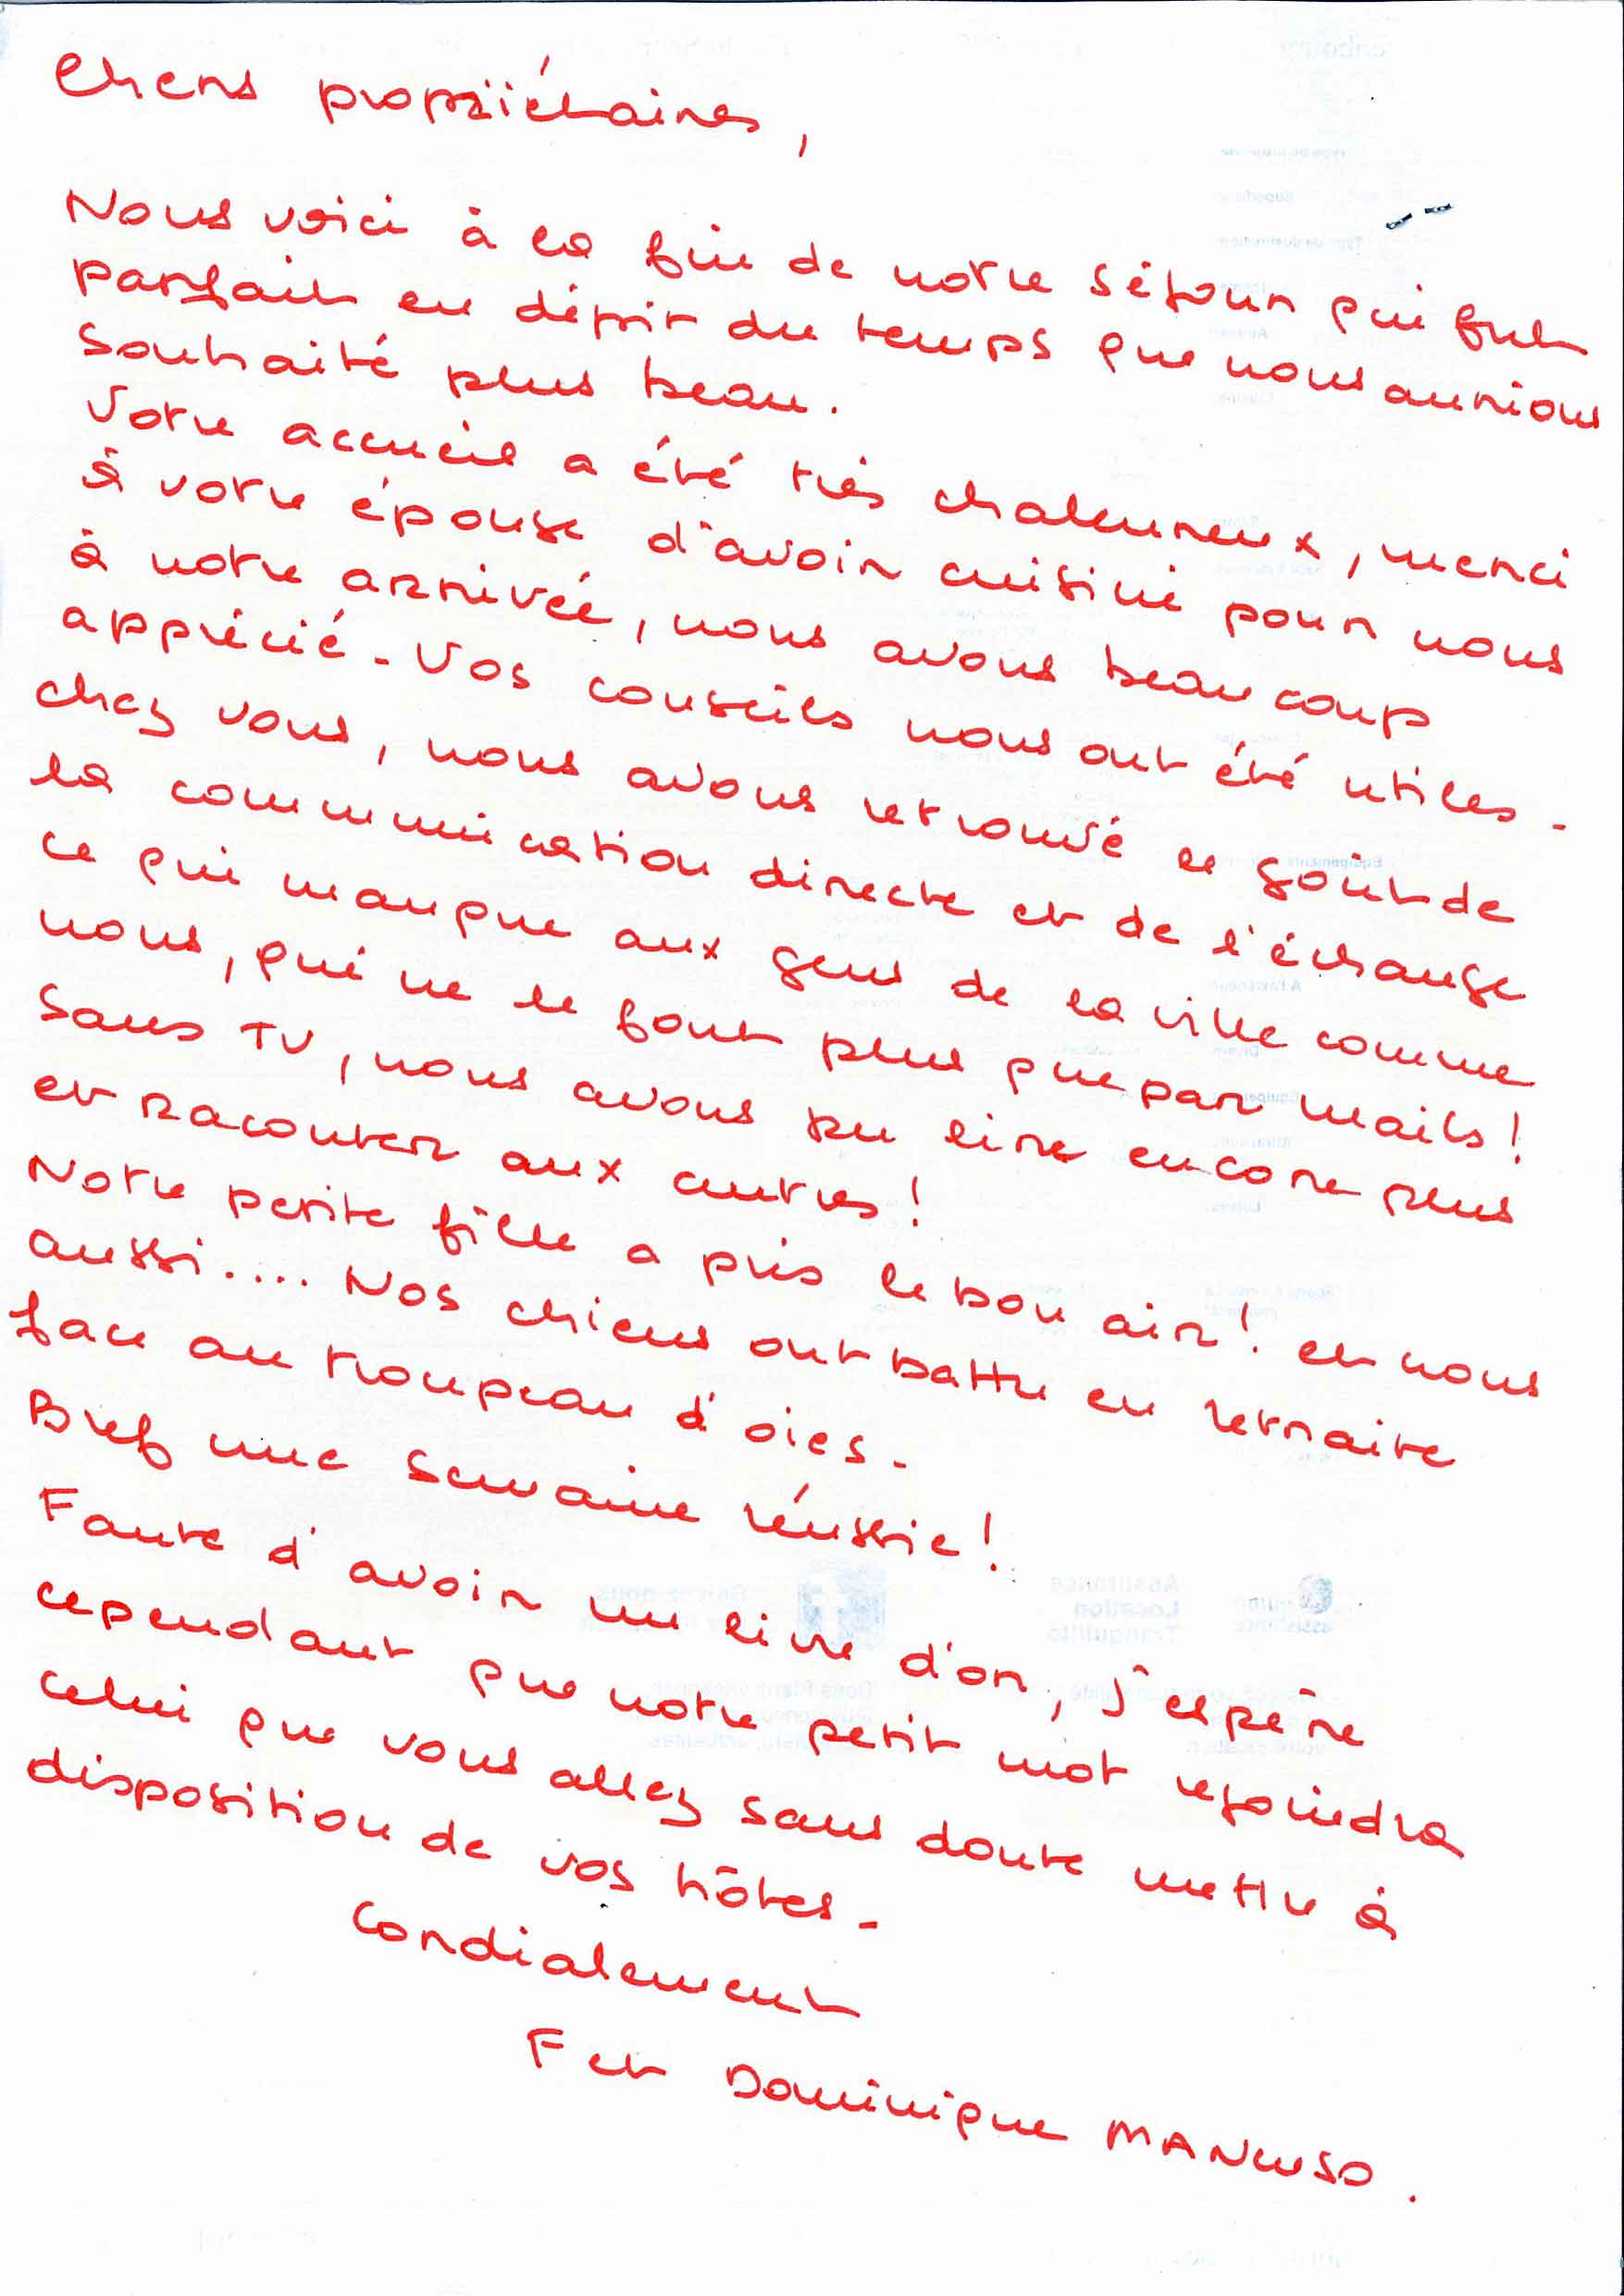 Chers propriétaires,
Nous voici à la fin de notre séjour qui fut
parfait en dépit du temps que nous aurions
souhaité plus beau.
Votre accueil a été très chaleureux, merci
à votre épouse d'avoir cuisiné pour nous
à notre arrivée, nous avons beaucoup
apprécié. Vos conseils nous ont été utiles.
chez vous, nous avons retrouvé le goût de
la communication directe et de l'échange
ce qui manque aux gens de la ville comme
nous, qui ne le font plus que par mails!
Sans TV, nous avons pu lire encore plus
et raconter aux autres!
Notre petite fille a pris le bon air! et nous
aussi.... Nos chiens ont battu en retraite
face au troupeau d'oies.
Bref une semaine réussie!
Faute d'avoir un livre d'or, j'espère
cependant que notre petit mot rejoindra
celui que vous allez sans doute mettre à
disposition de vos hôtes.
Cordialement
F et Dominique MANCUSO.